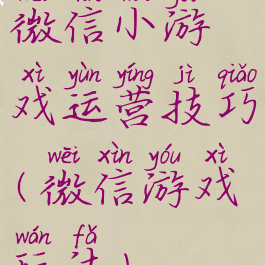 微信小游
xì yùn yíng jì qiǎo
戏运营技巧
wēi xìn yóu xì
(微信游戏
wán fǎ